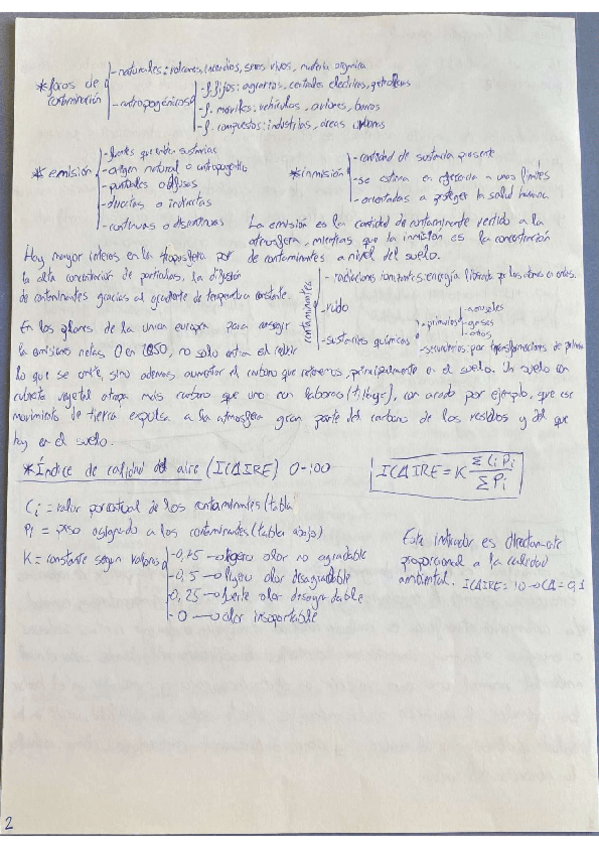 - naturales: volcanes, incendios, seres vivos, materia orgánica
*focos de contaminación
- antropogénicos
- f. fijos: agrarios, centrales eléctricas, petroleras
- f. móviles: vehículos, aviones, barcos
- f. compuestos: industrias, áreas urbanas
*emisión
- fuentes que emiten sustancias
- origen natural o antropogénico
- puntuales o difusos
- directas o indirectas
- continuas o discontinuas
*inmisión
- cantidad de sustancia presente
- se estima en referencia a unos límites
- orientadas a proteger la salud humana
La emisión es la cantidad de contaminante vertido a la
atmosfera, mientras que la inmisión es la concentración
de contaminantes a nivel del suelo.
Hay mayor interes en la troposfera por
la alta concentración de particulas, la difusión
de contaminantes gracias al gradiente de temperatura constante.
contaminantes
- radiaciones ionizantes: energía liberada
- ruido
- sustancias químicas
- primarios
- aerosoles
- gases
- otros
- secundarios: por transformaciones de
En los planes de la union europea para conseguir
la emisiones netas 0 en 2050, no solo entra el reducir
lo que se emite, sino ademas aumentar el carbono que retenemos, principalmente en el suelo. Un suelo con
cubierta vegetal atrapa más carbono que uno con labores (tillage), con arado por ejemplo, que ese
movimiento de tierra expulsa a la atmosfera gran parte del carbono de los residuos y del que
hay en el suelo.
*Índice de calidad del aire (ICAIRE) 0-100
ICAIRE = K Σ Ci Pi / Σ Pi
Ci = valor porcentual de los contaminantes (tabla
Pi = peso asignado a los contaminantes (tabla abajo)
K = constante segun valores
- 0,75 → ligero olor no agradable
- 0,5 → ligero olor desagradable
- 0,25 → fuerte olor desagradable
- 0 → olor insoportable
Este indicador es directamente
proporcional a la calidad
ambiental. ICAIRE = 10 → CA = 0,1
2